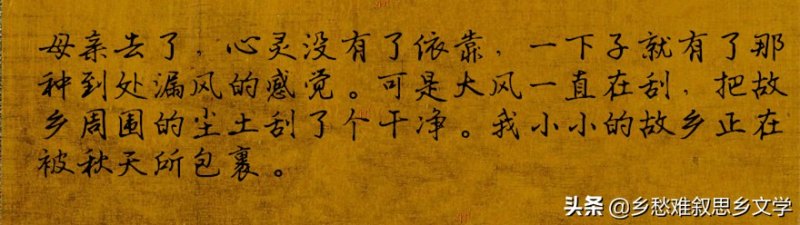 母亲去了，心灵没有了依靠，一下子就有了那
种到处漏风的感觉。可是大风一直在刮，把故
乡周围的尘土刮了个干净。我小小的故乡正在
被秋天所包裹。
头条 @乡愁难叙思乡文学